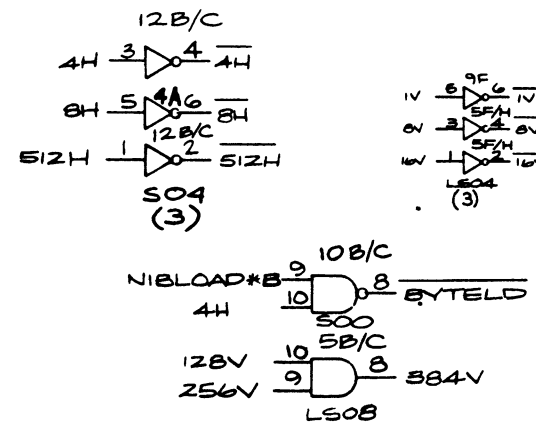 12B/C
4H 3 4 4H
8H 5 4A 6 8H
12B/C
512H 1 2 512H
S04
(3)
9F
1V 5 6 1V
5F/H
8V 3 4 8V
5F/H
16V 1 2 16V
LS04
(3)
10B/C
NIBLOAD*B 9
4H 10 8 BYTELD
S00
5B/C
128V 10
256V 9 8 384V
LS08